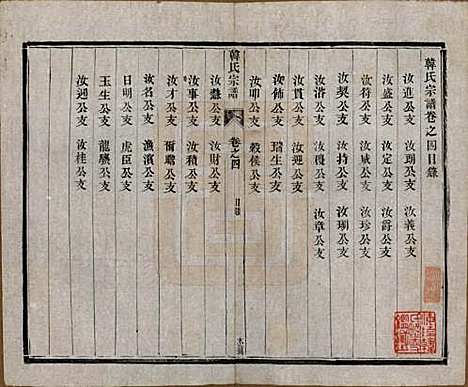 韓氏宗譜卷之四目錄
汝進公支 汝璵公支 汝義公支
汝盛公支 汝定公支 汝爵公支
汝符公支 汝咸公支 汝珍公支
汝契公支 汝持公支 汝瑚公支
汝濟公支 汝穫公支 汝章公支
汝貫公支 汝迎公支
汝佈公支 瑞生公支
汝叩公支 毅侯公支
韓氏宗譜
卷之四
目錄
汝懋公支 汝財公支
汝事公支 汝積公支
汝才公支 爾瞻公支
汝名公支 漁濱公支
日明公支 虎臣公支
玉生公支 龍驤公支
汝迥公支 汝桂公支